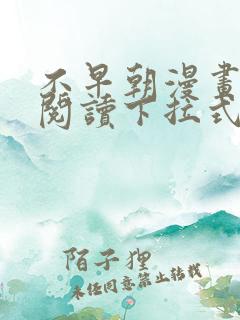 不早朝漫畫
閱讀下拉式
陌子狸
未经同意禁止转载